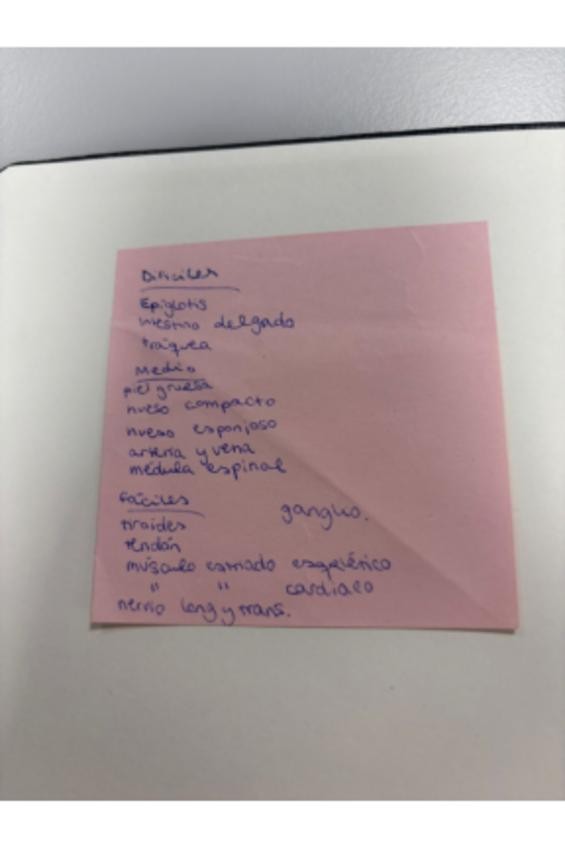 Difíciles
Epiglotis
intestino delgado
tráquea
Medio
piel gruesa
hueso compacto
hueso esponjoso
arteria y vena
médula espinal
Fáciles
ganglio.
tiroides
tendón
músculo estriado esquelético
" " cardiaco
nervio long y trans.